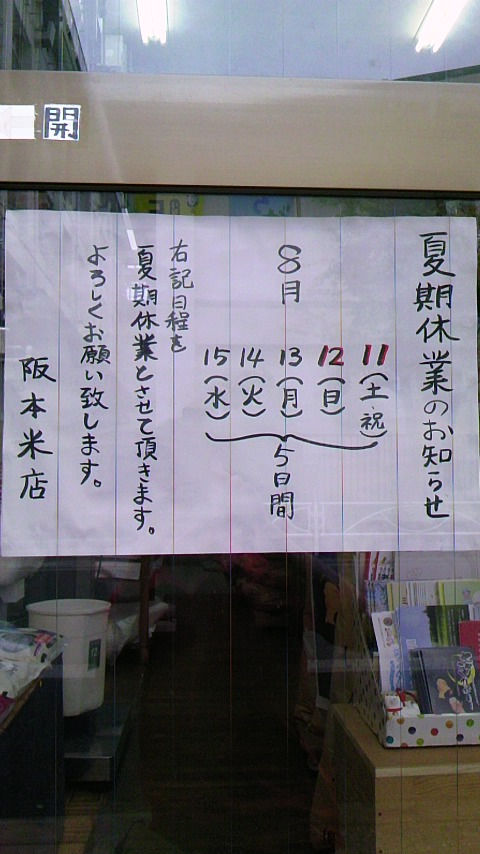 開
夏期休業のお知らせ
8月
11(土・祝)
12(日)
13(月)
14(火)
15(水)
5日間
右記日程を
夏期休業とさせて頂きます。
よろしくお願い致します。
阪本米店